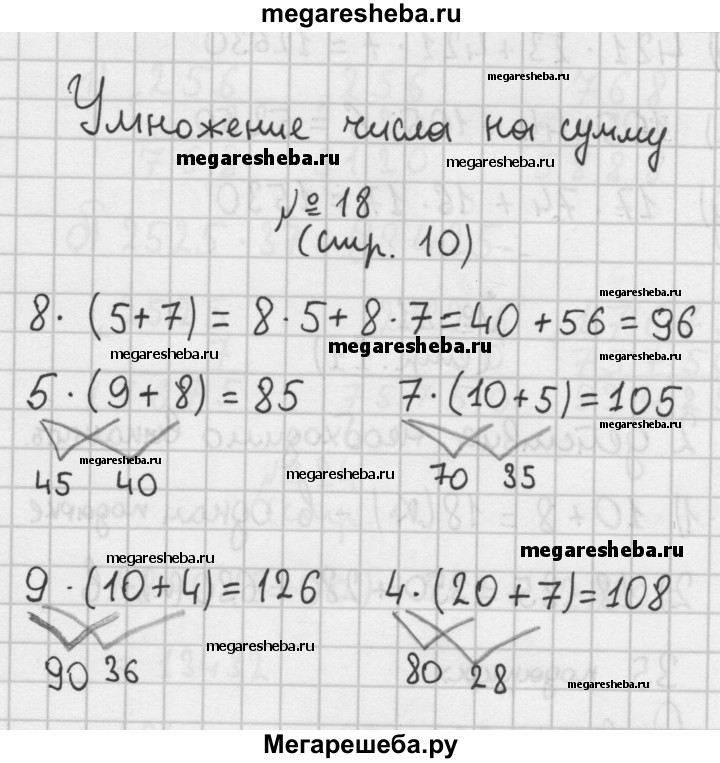 megaresheba.ru
megaresheba.ru
Умножение числа на сумму
megaresheba.ru megaresheba.ru
№ 18
(стр. 10)
megaresheba.ru
8· (5+7) = 8·5+8·7=40+56=96
megaresheba.ru megaresheba.ru megaresheba.ru
5·(9+8)=85 7·(10+5)=105
megaresheba.ru megaresheba.ru megaresheba.ru
45 40 70 35
megaresheba.ru megaresheba.ru
9·(10+4)=126 4·(20+7)=108
megaresheba.ru
90 36 80 28
megaresheba.ru
Мегарешеба.ру